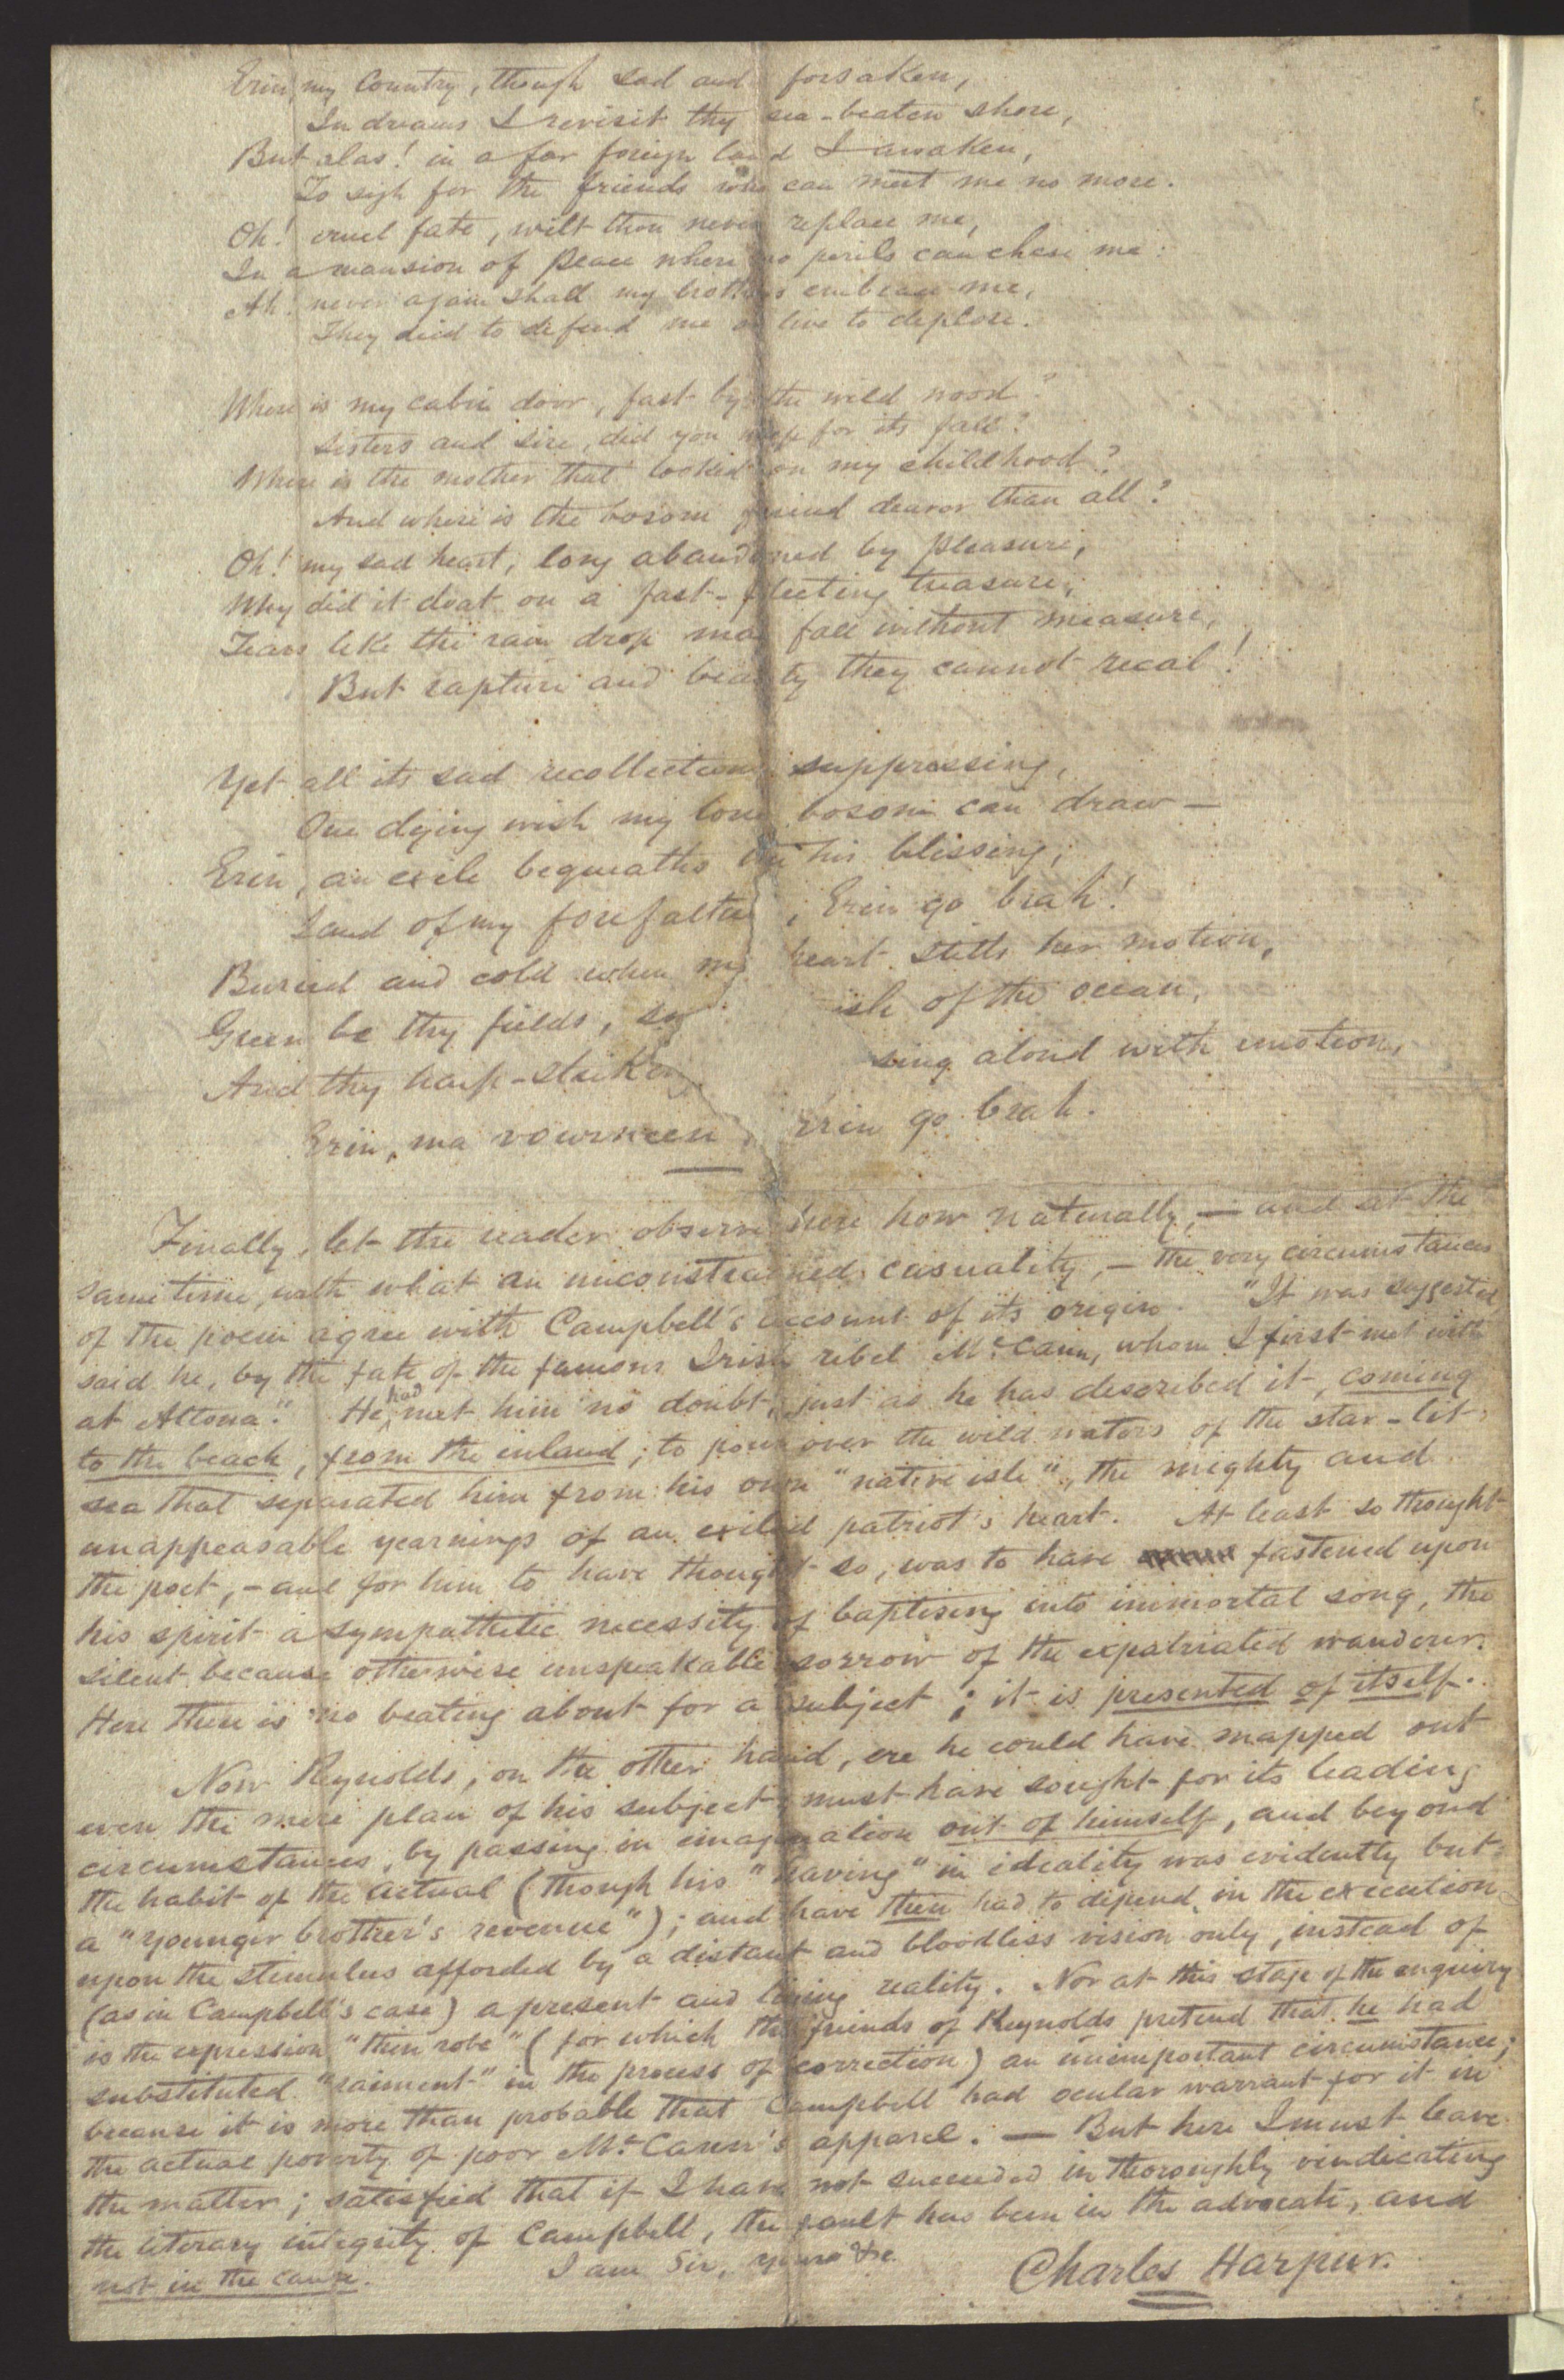 Erin, my Country, though sad and forsaken,
In dreams I revisit thy sea-beaten shore,
But alas! in a far foreign land I awaken,
To sigh for the friends who can meet me no more.
Oh! cruel fate, wilt thou never replace me,
In a mansion of peace where no perils can chase me:
Ah! never again shall my brothers embrace me,
They died to defend me or live to deplore.
Where is my cabin door, fast by the wild wood?
Sisters and sire, did you weep for its fall?
Where is the mother that looked on my childhood?
And where is the bosom friend dearer than all?
Oh! my sad heart, long abandoned by pleasure,
Why did it doat on a fast-fleeting treasure,
Tears like the rain drop may fall without measure,
But rapture and beauty they cannot recal!
Yet all its sad recollections suppressing,
One dying wish my lone bosom can draw—
Erin, an exile bequeaths thee his blessing,
Land of my forefathers, Erin go brah!
Buried and cold when my heart stills her motion,
Green be thy fields, isle of the ocean,
And thy harp-striking sing aloud with emotion,
Erin, ma vourneen, Erin go brah.
Finally, let the reader observe here how naturally,— and at the
same time, with what an unconstrained casuality,— the very circumstances
of the poem agree with Campbell's account of its origin. "It was suggested,
said he, by the fate of the famous Irish rebel Mc. Cann, whom I first met with
at Altona." He had met him no doubt, just as he has described it, coming
to the beach, from the inland; to pour over the wild waters of the star-lit
sea that separated him from his own "native isle", the mighty and
unappeasable yearnings of an exiled patriot's heart. At least so thought
the poet,—and for him to have thought so, was to have fastened upon
his spirit a sympathetic necessity of baptising into immortal song, the
silent because otherwise unspeakable sorrow of the expatriated wanderer.
Here there is no beating about for a subject; it is presented of itself.
Now Reynolds, on the other hand, ere he could have mapped out
even the mere plan of his subject, must have sought for its leading
circumstances, by passing in imagination out of himself, and beyond
the habit of the actual (though his "having" in ideality was evidently but
a "younger brother's revenue"); and have then had to depend, in the execution
upon the stimulus afforded by a distant and bloodless vision only, instead of
(as in Campbell's case) a present and living reality. Nor at this stage of the enquiry
is the expression "thin robe" (for which the friends of Reynolds pretend that he had
substituted "raiment" in the process of correction) an unimportant circumstance;
because it is more than probable that Campbell had ocular warrant for it in
the actual poverty of poor Mc. Cann's apparel. — But here I must leave
the matter; satisfied that if I have not succeeded in thoroughly vindicating
the literary integrity of Campbell, the fault has been in the advocate, and
not in the cause. I am Sir, yours &c.
Charles Harpur.